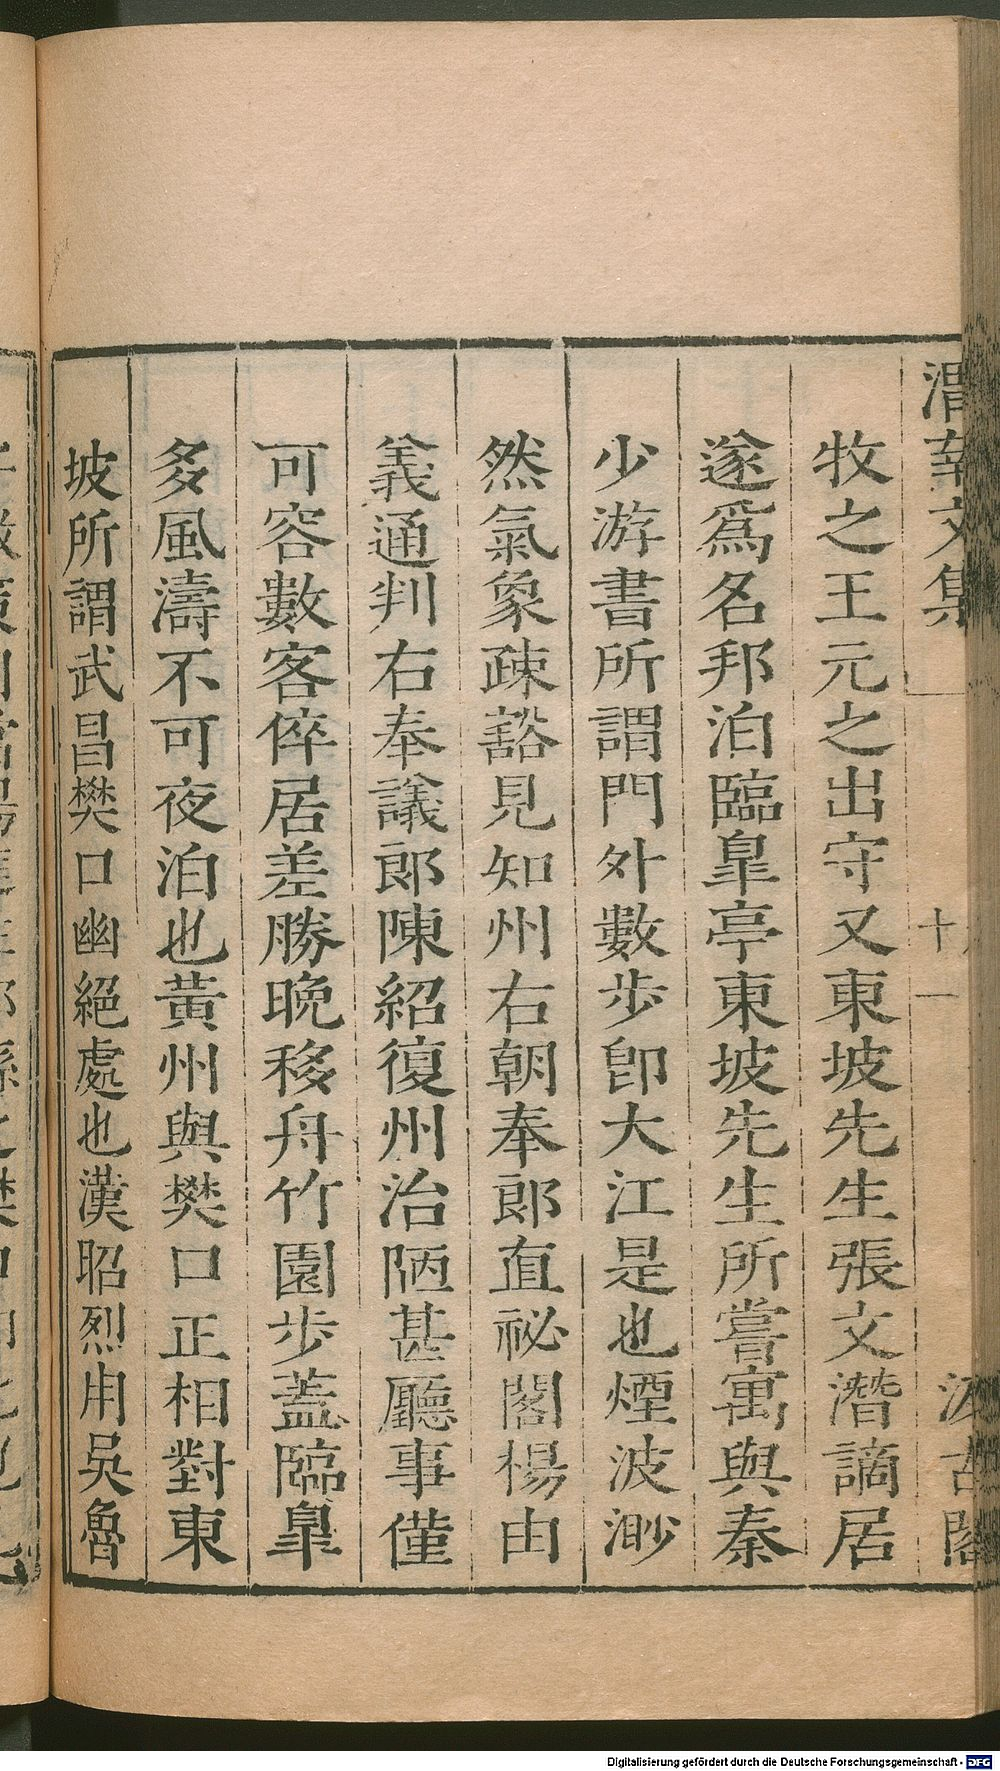 渭南文集 十一 汲古閣
牧之王元之出守又東坡先生張文潛謫居
遂爲名邦泊臨臯亭東坡先生所嘗寓與秦
少游書所謂門外數步卽大江是也煙波渺
然氣象疎豁見知州右朝奉郎直祕閣楊由
義通判右奉議郎陳紹復州治陋甚廳事僅
可容數客倅居差勝晚移舟竹園步蓋臨臯
多風濤不可夜泊也黃州與樊口正相對東
坡所謂武昌樊口幽絕處也漢昭烈用吳魯
Digitalisierung gefördert durch die Deutsche Forschungsgemeinschaft - DFG